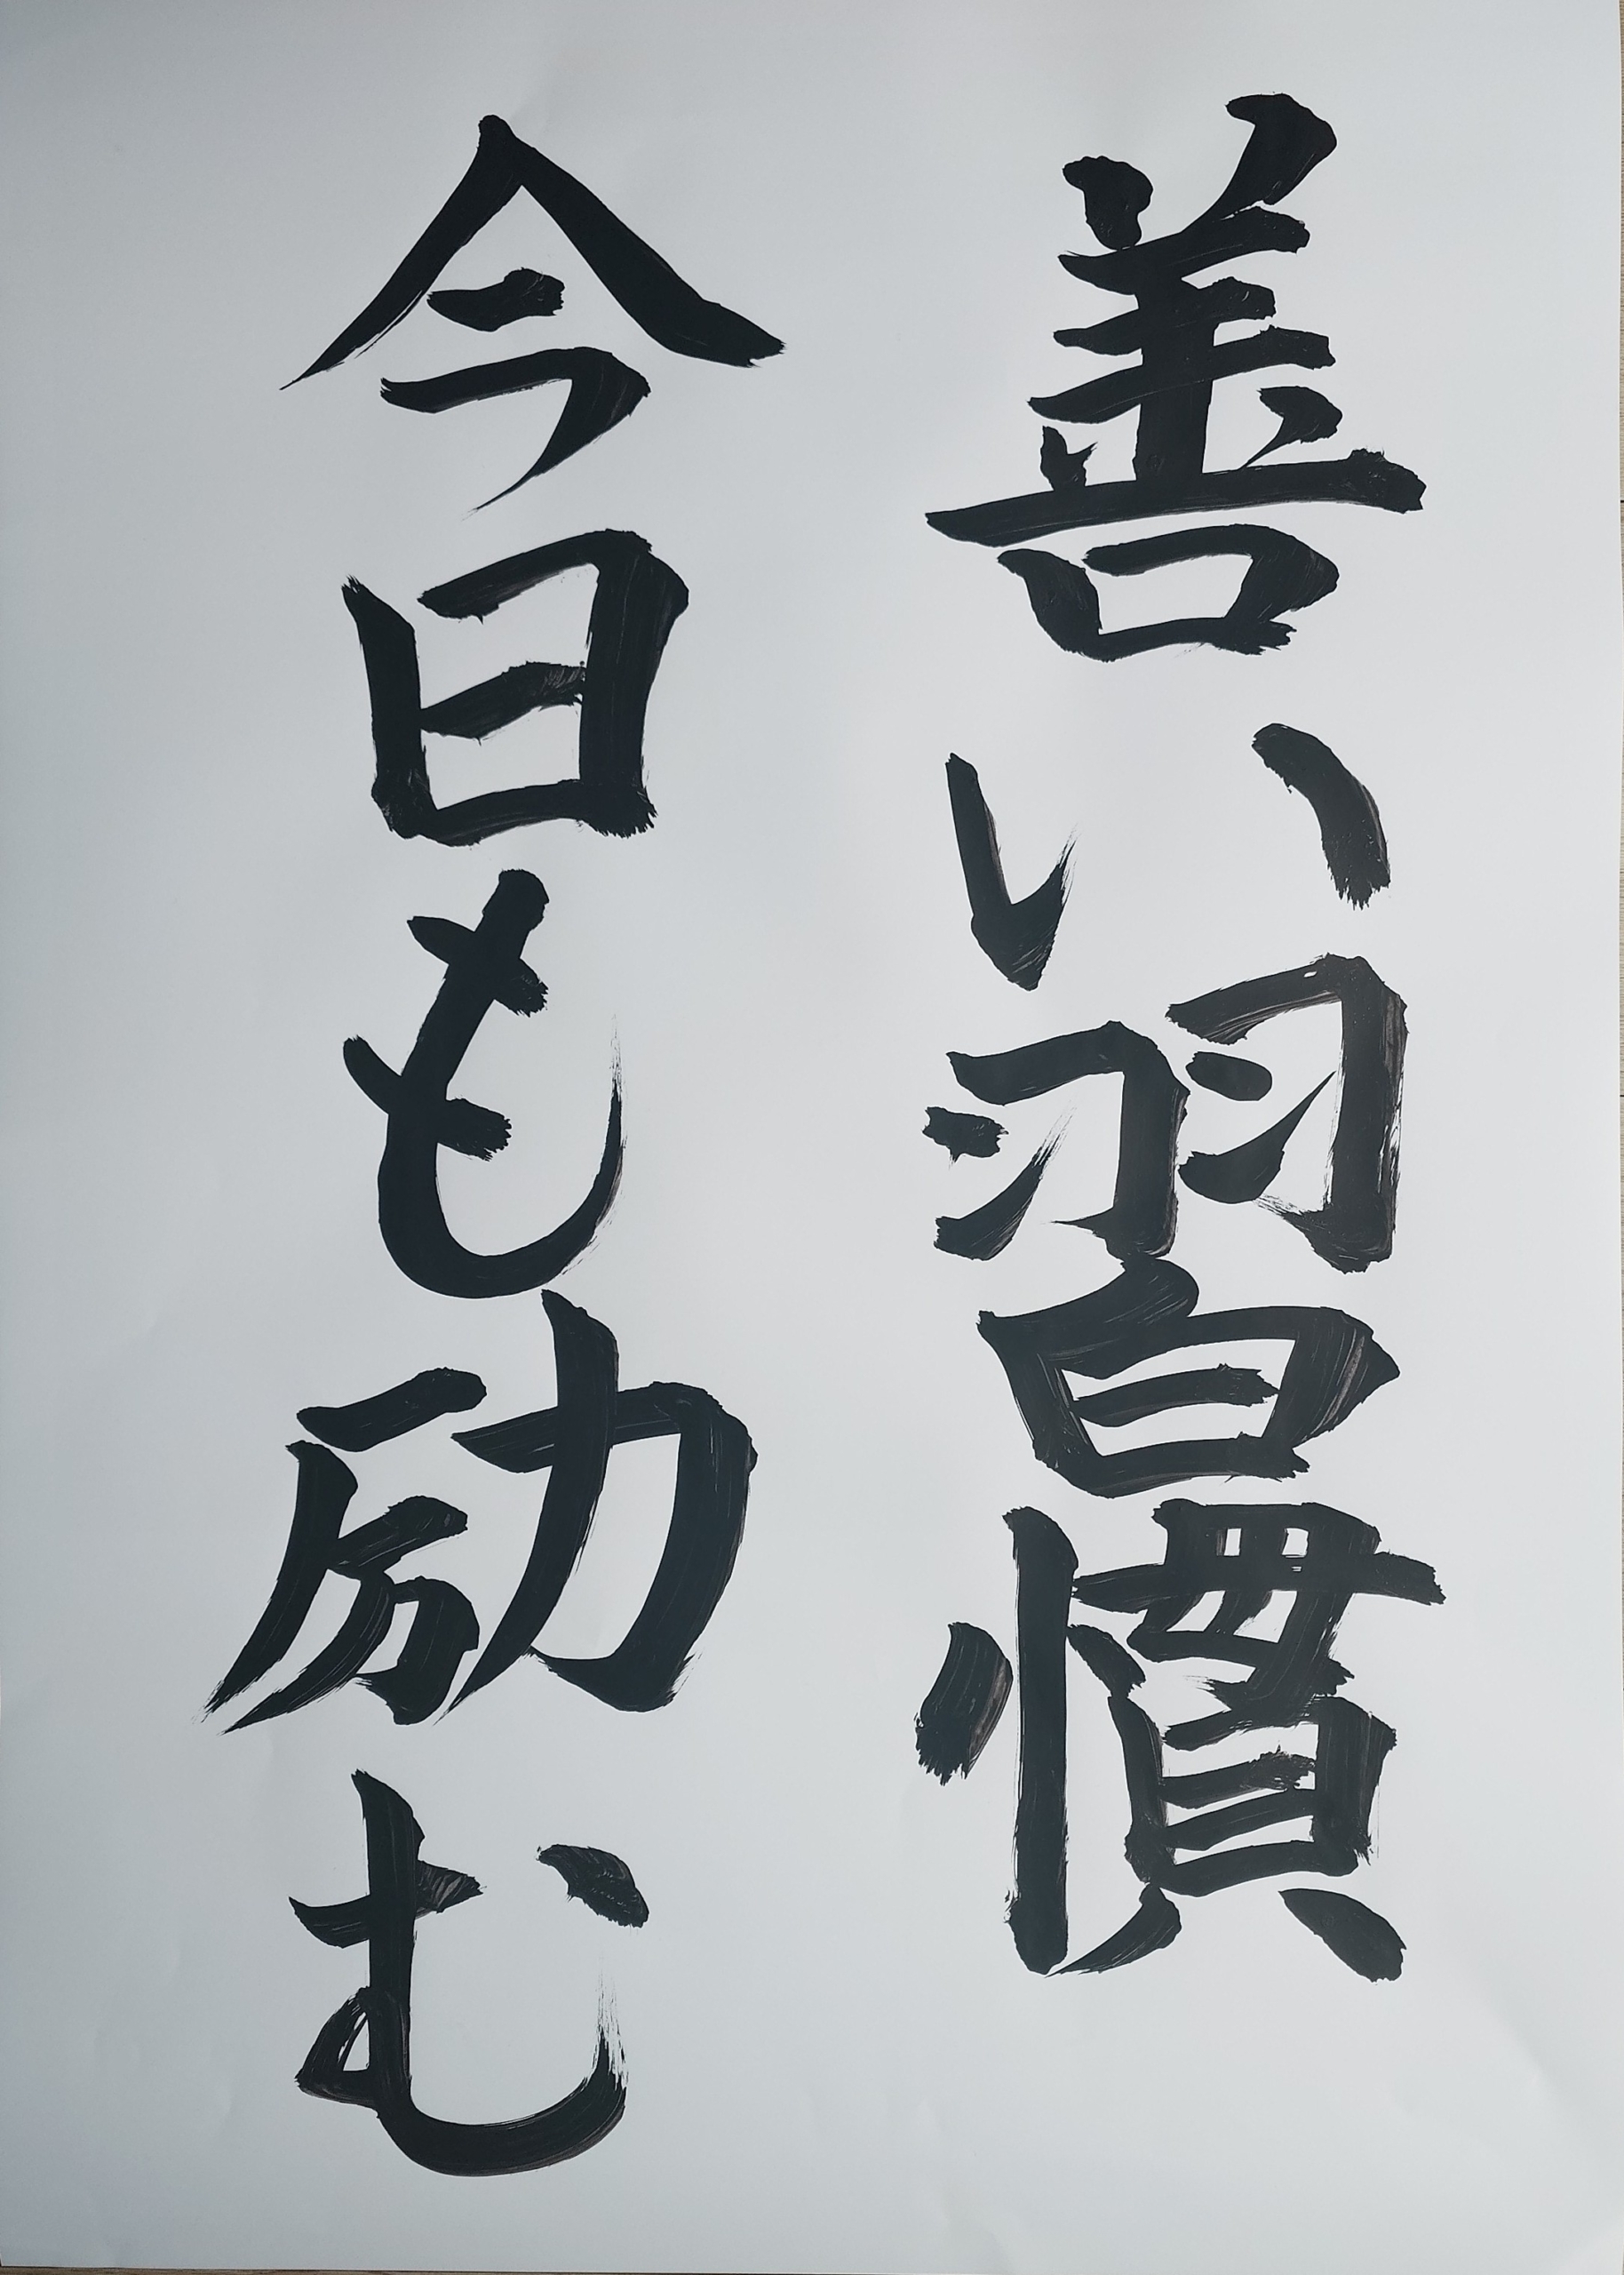 善い習慣
今日も励む